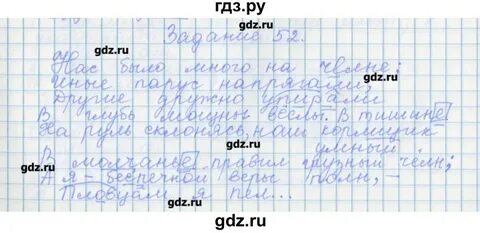 гдз.ру
Задание 52.
Нас было много на челне;
Иные парус напрягали,
Другие дружно упирали
В глубь мощны веслы. В тишине
На руль склонясь, наш кормщик
умный
В молчанье правил грузный чёлн;
А я – беспечной веры полн, –
Пловцам я пел...
gdz.ru
gdz.ru
gdz.ru
gdz.ru
gdz.ru